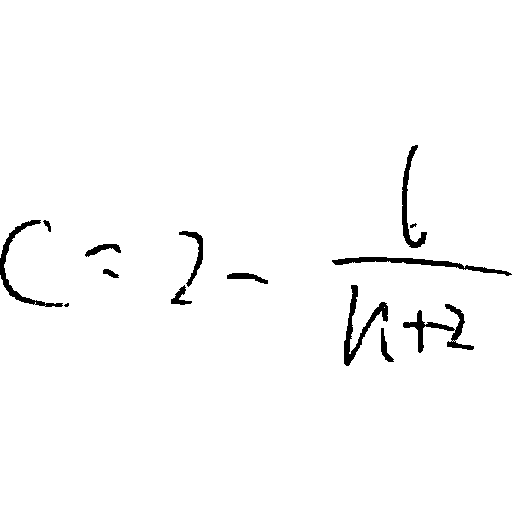 C = 2 - \frac{6}{n+2}